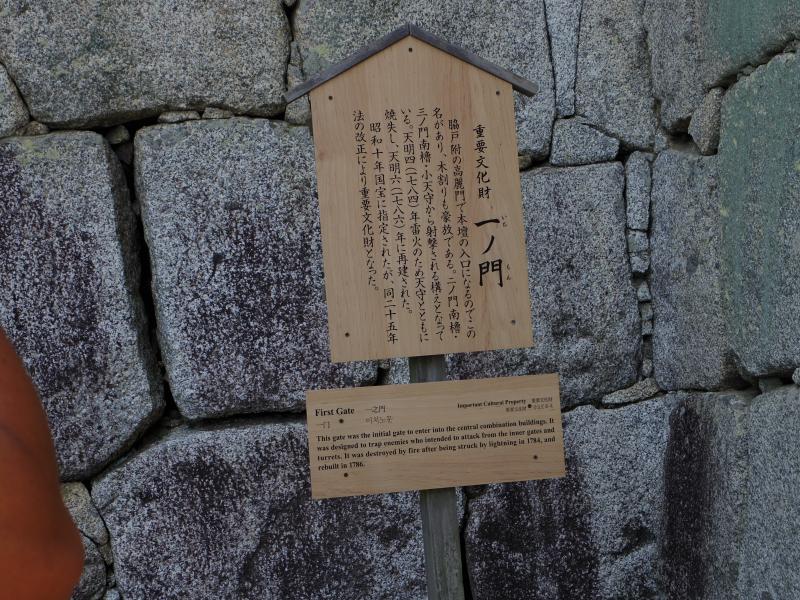 重要文化財 一ノ門
いち もん
脇戸附の高麗門で本壇の入口になるのでこの
名があり、木割りも豪放である。二ノ門南櫓・
三ノ門南櫓・小天守から射撃される構えとなって
いる。天明四(一七八四)年雷火のため天守とともに
焼失し、天明六(一七八六)年に再建された。
昭和十年国宝に指定されたが、同二十五年
法の改正により重要文化財となった。
First Gate 一之門
一门 이치노몬
Important Cultural Property
This gate was the initial gate to enter into the central combination buildings. It
was designed to trap enemies who intended to attack from the inner gates and
turrets. It was destroyed by fire after being struck by lightning in 1784, and
rebuilt in 1786.